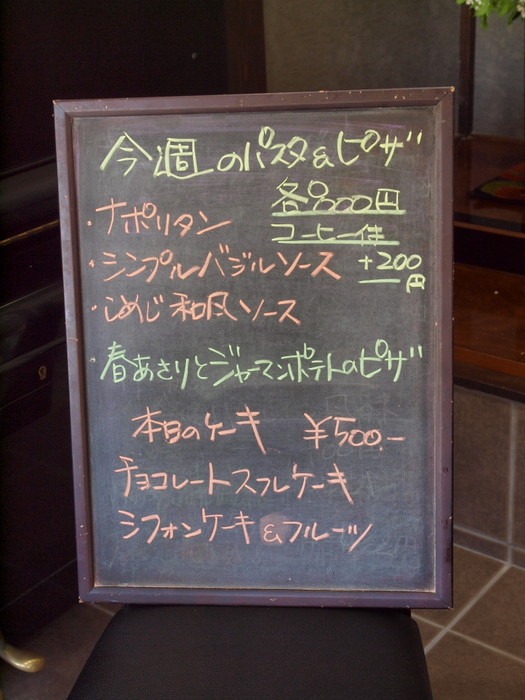 今週のパスタ&ピザ
各800円
・ナポリタン
コーヒー付
・シンプルバジルソース
+200円
・しめじ和風ソース
・春あさりとジャーマンポテトのピザ
本日のケーキ ¥500.-
チョコレートスフレケーキ
シフォンケーキ&フルーツ